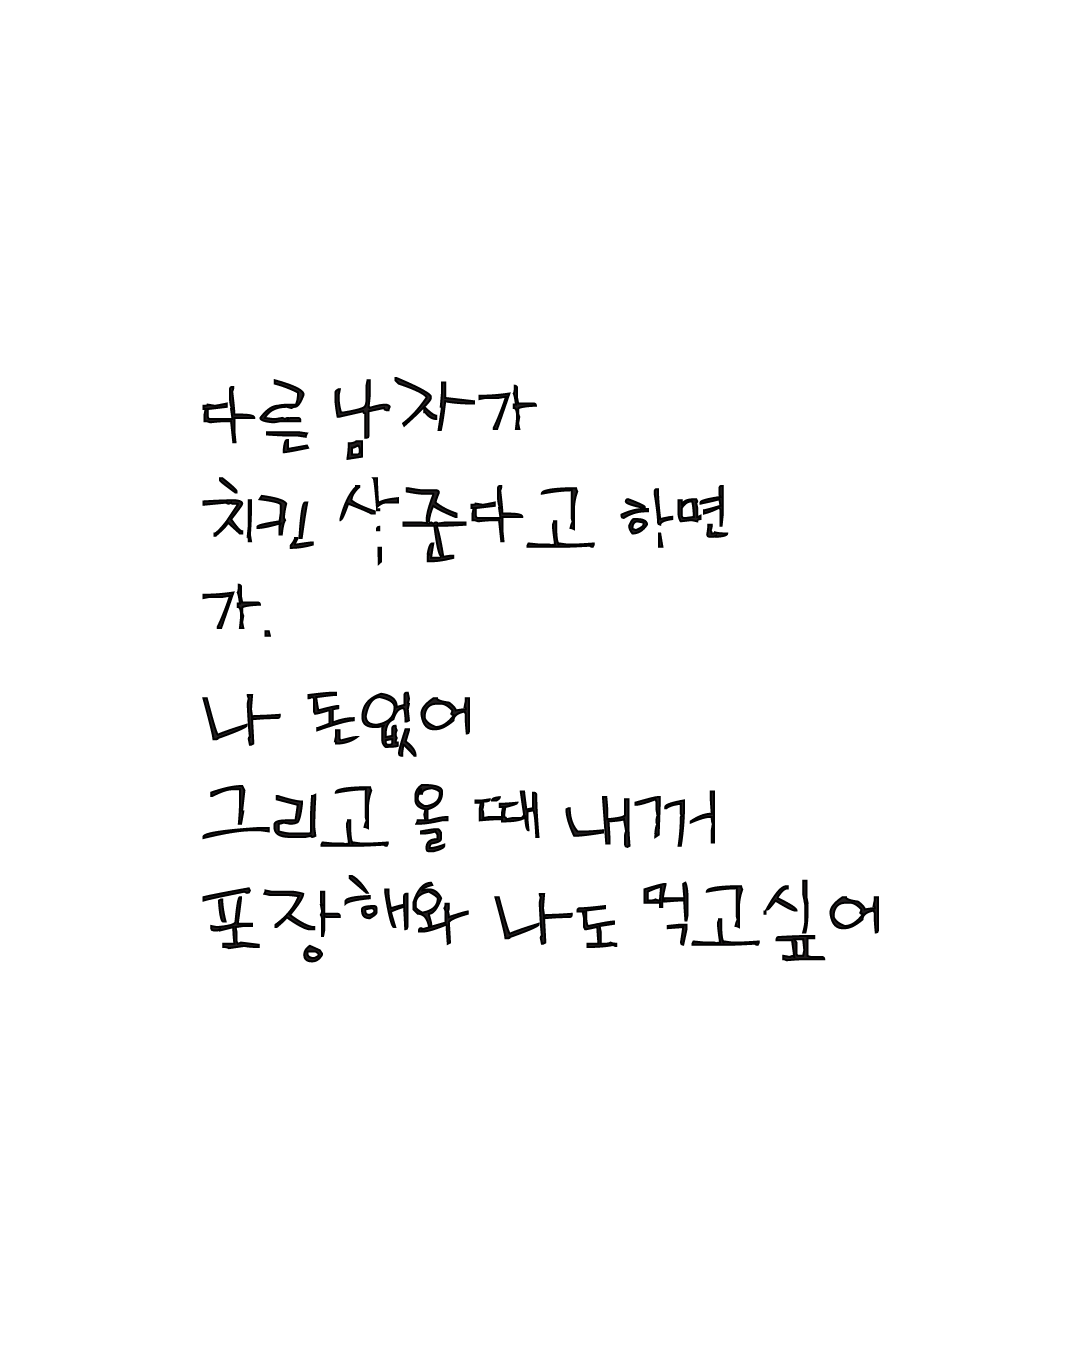 다른 남자가
치킨 사준다고 하면
가.
나 돈없어
그리고 올 때 내꺼
포장해와 나도 먹고싶어